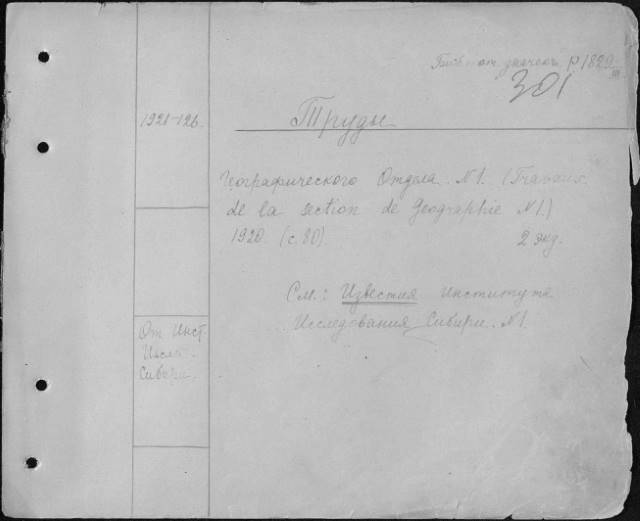 от р 1829
301
1921-126.
Труды
Географического Отдела. N1. (Travaux
de la section de Geographie N1.)
1920. (с. 80). 2 экз.
См.: Известия Института
Исследования Сибири. N1.
От Инст.
Иссл.
Сибири.